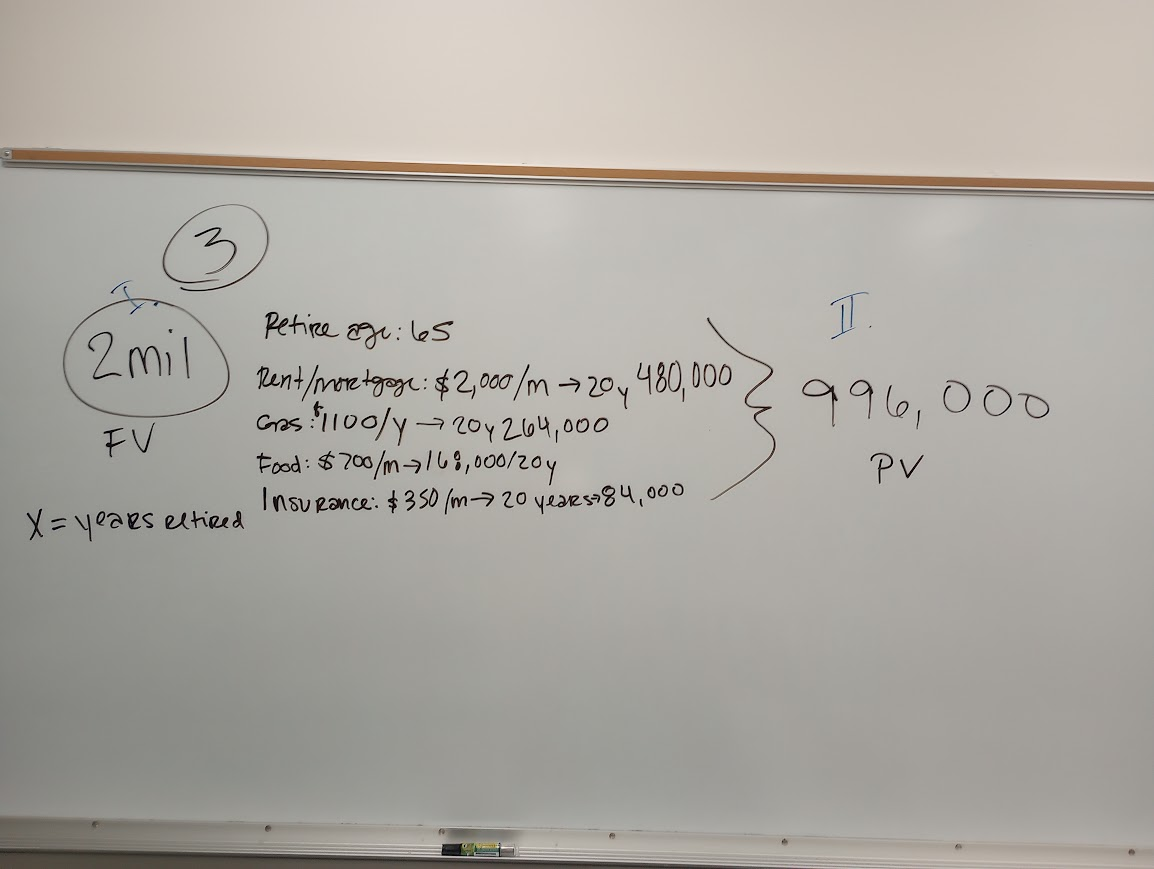 3
I.
2mil
FV
X = years retired
Retire age: 65
Rent/mortgage: $2,000/m → 20y 480,000
Gas: $1100/y → 20y 264,000
Food: $700/m → 168,000/20y
Insurance: $350/m → 20 years → 84,000
II.
996,000
PV